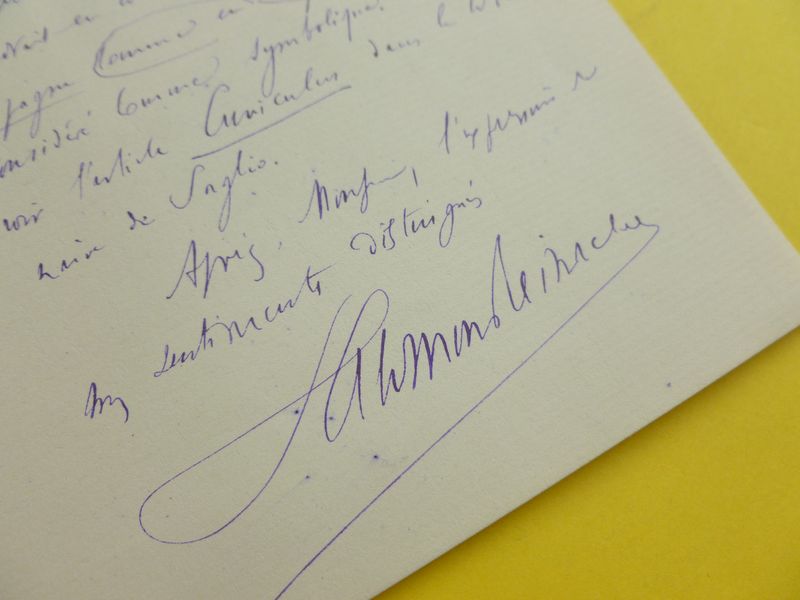 comme en
considéré comme symbolique.
voir l'article Cuniculus dans le
naire de Saglio.
Agréez, Monsieur, l'expression de
mes sentiments distingués
Salomon Reinach